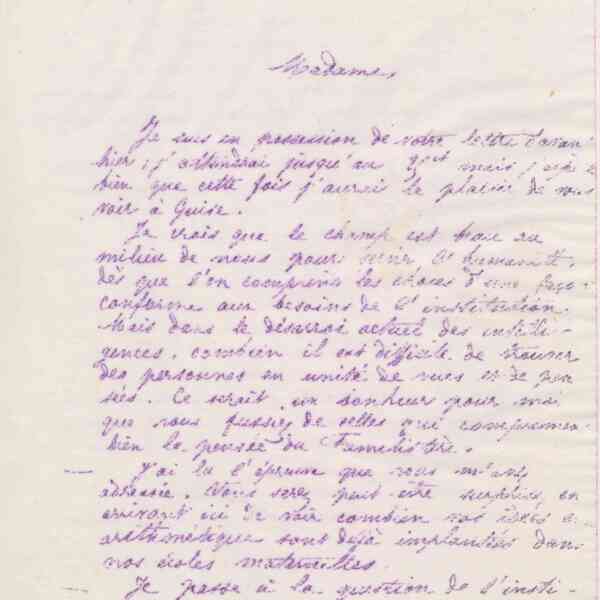 Madame,
Je suis en possession de votre lettre d'avant
hier ; j'attendrai jusqu'au mais j'espère
bien que cette fois j'aurai le plaisir de vous
voir à Guise.
Je crois que le champ est beau au
milieu de nous pour servir l'humanité,
dès que l'on comprend les choses d'une façon
conforme aux besoins de l'institution.
Mais dans le désarroi actuel des intelli-
gences, combien il est difficile de trouver
des personnes en unité de vues et de pen-
sées. Ce serait un bonheur pour moi
que vous fussiez de celles qui comprennent
bien la pensée du Familistère.
J'ai lu l'épreuve que vous m'avez
adressée. Vous serez peut être surprise en
arrivant ici de voir combien vos idées
arithmétique sont déjà implantées dans
nos écoles maternelles.
Je passe à la question de l'insti-